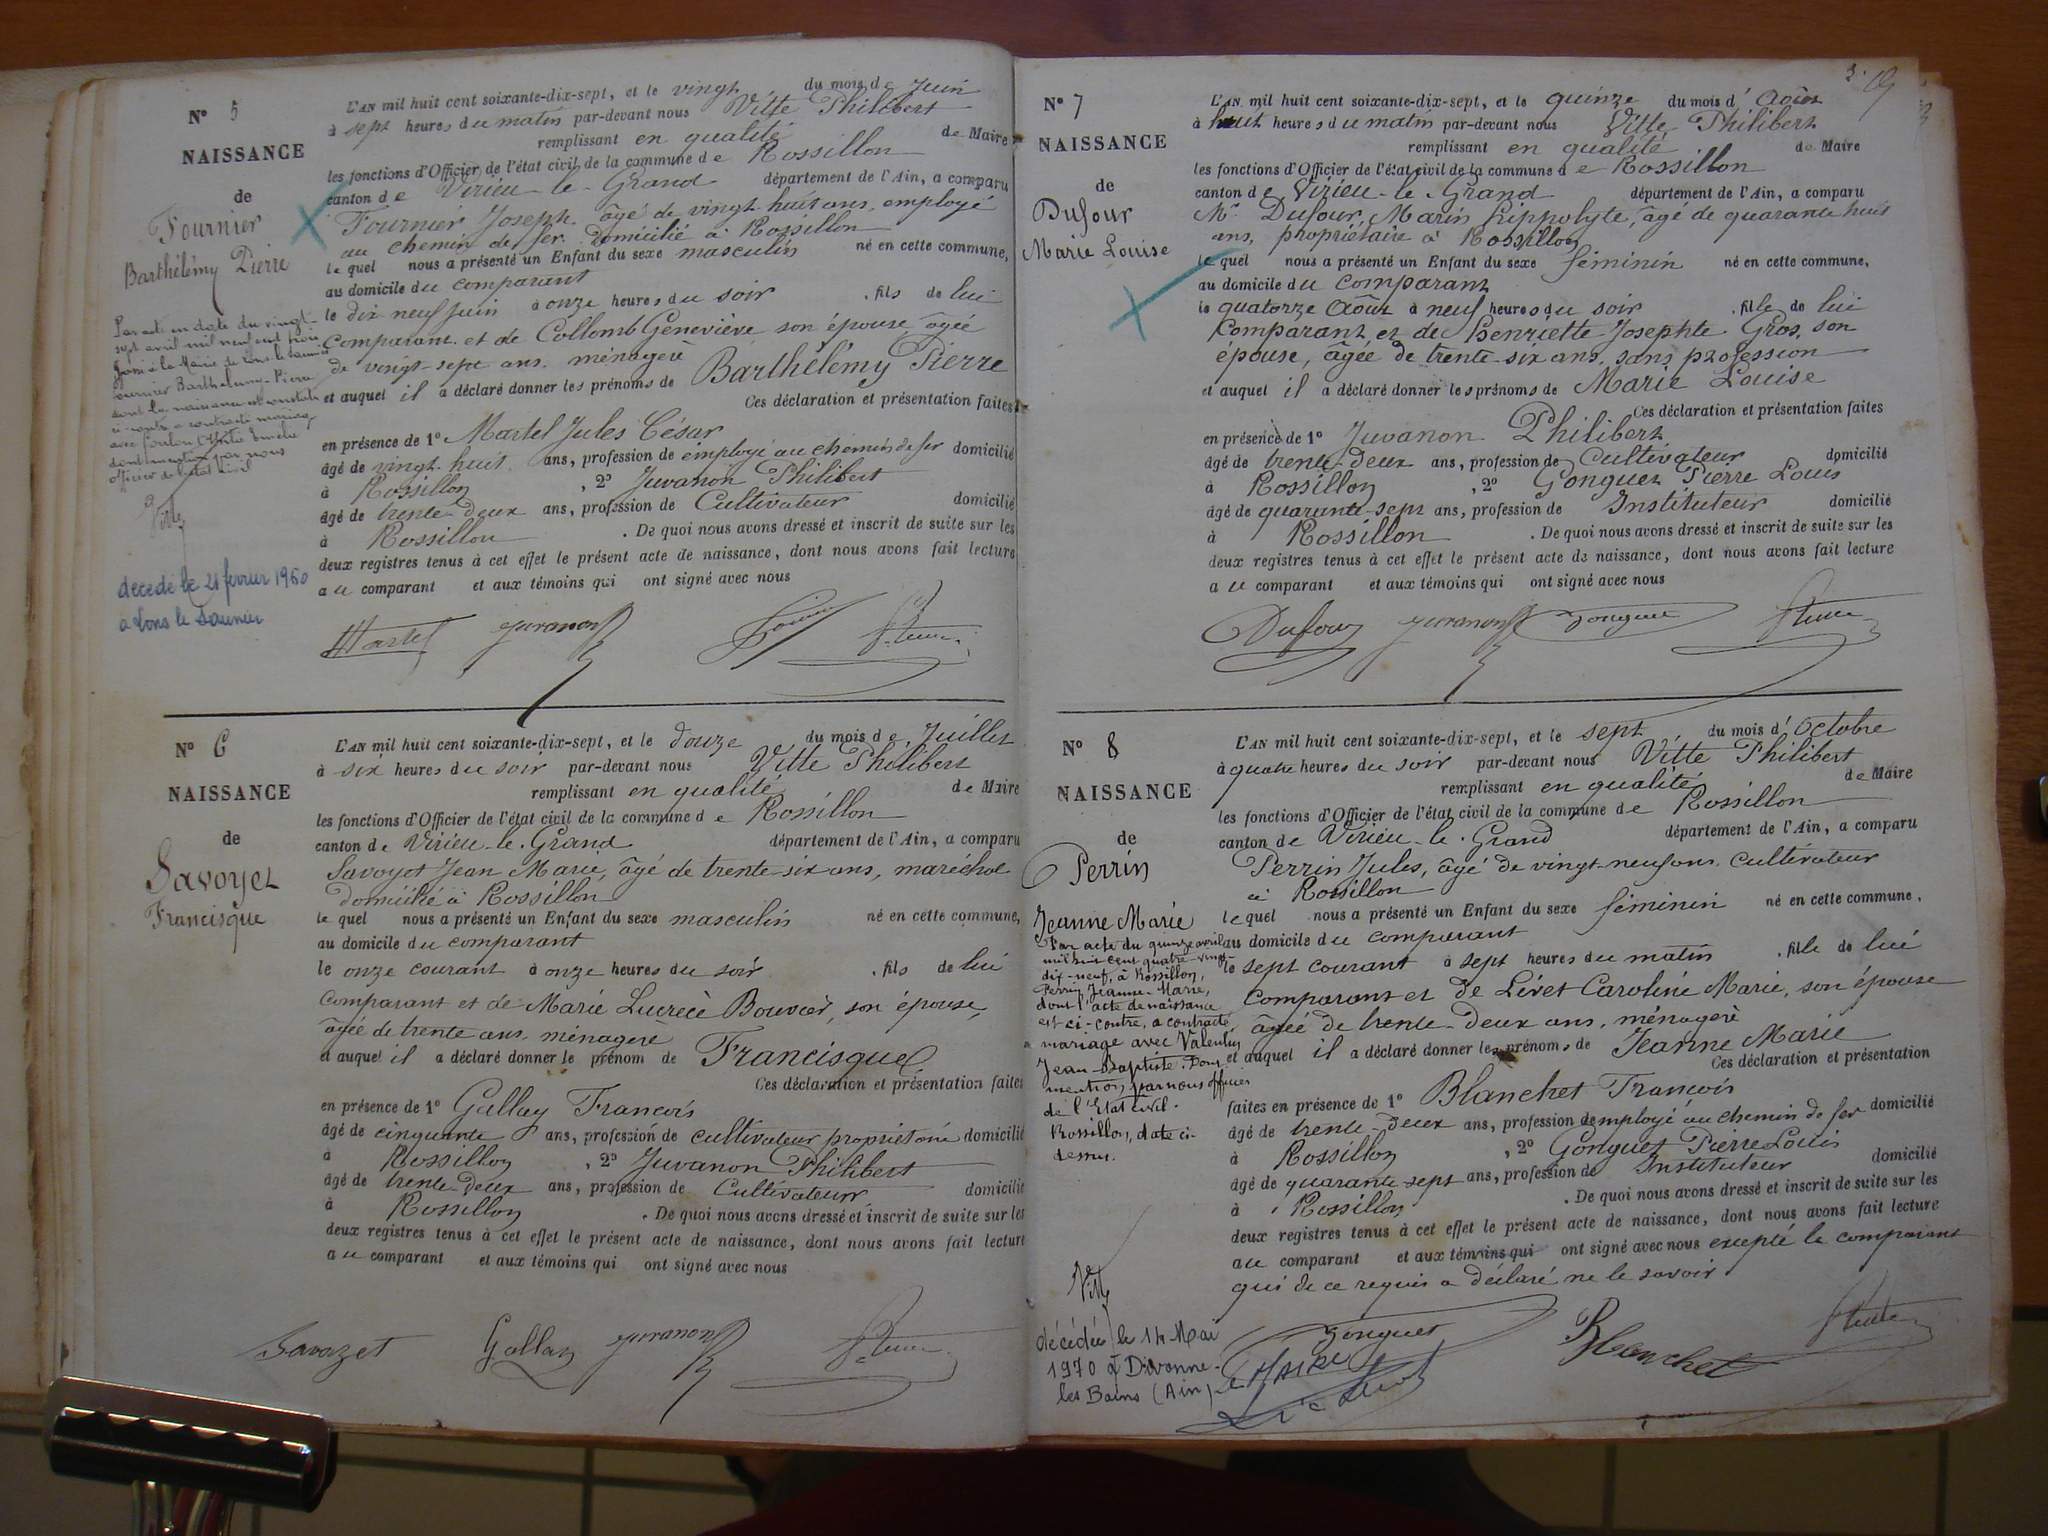 N° 5
NAISSANCE
de
Fournier
Barthélémy Pierre
Par acte en date du vingt-
sept avril mil neuf cent trois
Fournier Barthélemy-Pierre
dont la naissance est constatée
ci-contre a contracté mariage
dont mention par nous
officier de l'état civil
Vitte
décédé le 21 février 1960
à Lons le Saunier
L'AN mil huit cent soixante-dix-sept, et le vingt du mois de Juin
à sept heures du matin par-devant nous Vitte Philibert
remplissant en qualité de Maire
les fonctions d'Officier de l'état civil de la commune de Rossillon
canton de Virieu-le-Grand département de l'Ain, a comparu
Fournier Joseph, âgé de vingt-huit ans, employé
au chemin de fer, domicilié à Rossillon
le quel nous a présenté un Enfant du sexe masculin né en cette commune,
au domicile du comparant
le dix neuf juin à onze heures du soir, fils de lui
comparant et de Collomb Geneviève son épouse, âgée
de vingt-sept ans, ménagère
et auquel il a déclaré donner les prénoms de Barthélémy Pierre
Ces déclaration et présentation faites
en présence de 1° Martel Jules César
âgé de vingt-huit ans, profession de employé au chemin de fer domicilié
à Rossillon, 2° Juvanon Philibert
âgé de trente-deux ans, profession de Cultivateur domicilié
à Rossillon. De quoi nous avons dressé et inscrit de suite sur les
deux registres tenus à cet effet le présent acte de naissance, dont nous avons fait lecture
au comparant et aux témoins qui ont signé avec nous
Martel Juvanon
N° 6
NAISSANCE
de
Savoyet
Francisque
L'AN mil huit cent soixante-dix-sept, et le douze du mois de Juillet
à six heures du soir par-devant nous Vitte Philibert
remplissant en qualité de Maire
les fonctions d'Officier de l'état civil de la commune de Rossillon
canton de Virieu-le-Grand département de l'Ain, a comparu
Savoyet Jean Marie, âgé de trente-six ans, maréchal
domicilié à Rossillon
le quel nous a présenté un Enfant du sexe masculin né en cette commune,
au domicile du comparant
le onze courant à onze heures du soir, fils de lui
comparant et de Marie Lucrèce Bouvier, son épouse,
âgée de trente ans, ménagère
et auquel il a déclaré donner le prénom de Francisque
Ces déclaration et présentation faites
en présence de 1° Gallay François
âgé de cinquante ans, profession de cultivateur propriétaire domicilié
à Rossillon, 2° Juvanon Philibert
âgé de trente-deux ans, profession de Cultivateur domicilié
à Rossillon. De quoi nous avons dressé et inscrit de suite sur les
deux registres tenus à cet effet le présent acte de naissance, dont nous avons fait lecture
au comparant et aux témoins qui ont signé avec nous
Savoyet Gallay Juvanon
N° 7
NAISSANCE
de
Dufour
Marie Louise
L'AN mil huit cent soixante-dix-sept, et le quinze du mois d'Août
à huit heures du matin par-devant nous Vitte Philibert
remplissant en qualité de Maire
les fonctions d'Officier de l'état civil de la commune de Rossillon
canton de Virieu-le-Grand département de l'Ain, a comparu
Mr Dufour, Marin Hippolyte, âgé de quarante huit
ans, propriétaire à Rossillon
le quel nous a présenté un Enfant du sexe féminin né en cette commune,
au domicile du comparant
le quatorze Août à neuf heures du soir, fille de lui
comparant et de Henriette Josephte Gros, son
épouse, âgée de trente-six ans, sans profession
et auquel il a déclaré donner les prénoms de Marie Louise
Ces déclaration et présentation faites
en présence de 1° Juvanon Philibert
âgé de trente-deux ans, profession de Cultivateur domicilié
à Rossillon, 2° Gonguet Pierre Louis
âgé de quarante-sept ans, profession de Instituteur domicilié
à Rossillon. De quoi nous avons dressé et inscrit de suite sur les
deux registres tenus à cet effet le présent acte de naissance, dont nous avons fait lecture
au comparant et aux témoins qui ont signé avec nous
Dufour Juvanon Gonguet
N° 8
NAISSANCE
de
Perrin
Jeanne Marie
Par acte du quinze avril
mil huit cent quatre-vingt-
dix-neuf, à Rossillon,
Perrin, Jeanne-Marie,
dont l'acte de naissance
est ci-contre, a contracté
mariage avec Valentin
Jean-Baptiste. Dont
mention par nous officier
de l'Etat civil.
Rossillon, date ci-
dessus.
Vitte
décédée le 14 Mai
1970 à Divonne-
les Bains (Ain)
Le Maire
L'AN mil huit cent soixante-dix-sept, et le sept du mois d'Octobre
à quatre heures du soir par-devant nous Vitte Philibert
remplissant en qualité de Maire
les fonctions d'Officier de l'état civil de la commune de Rossillon
canton de Virieu-le-Grand département de l'Ain, a comparu
Perrin Jules, âgé de vingt-neuf ans, cultivateur
à Rossillon
le quel nous a présenté un Enfant du sexe féminin né en cette commune,
au domicile du comparant
le sept courant à sept heures du matin, fille de lui
comparant et de Livet Caroline Marie, son épouse
âgée de trente-deux ans, ménagère
et auquel il a déclaré donner les prénoms de Jeanne Marie
Ces déclaration et présentation
faites en présence de 1° Blanchet François
âgé de trente-deux ans, profession de employé au chemin de fer domicilié
à Rossillon, 2° Gonguet Pierre Louis
âgé de quarante-sept ans, profession de Instituteur domicilié
à Rossillon. De quoi nous avons dressé et inscrit de suite sur les
deux registres tenus à cet effet le présent acte de naissance, dont nous avons fait lecture
au comparant et aux témoins qui ont signé avec nous excepté le comparant
qui de ce requis a déclaré ne le savoir
Gonguet Blanchet